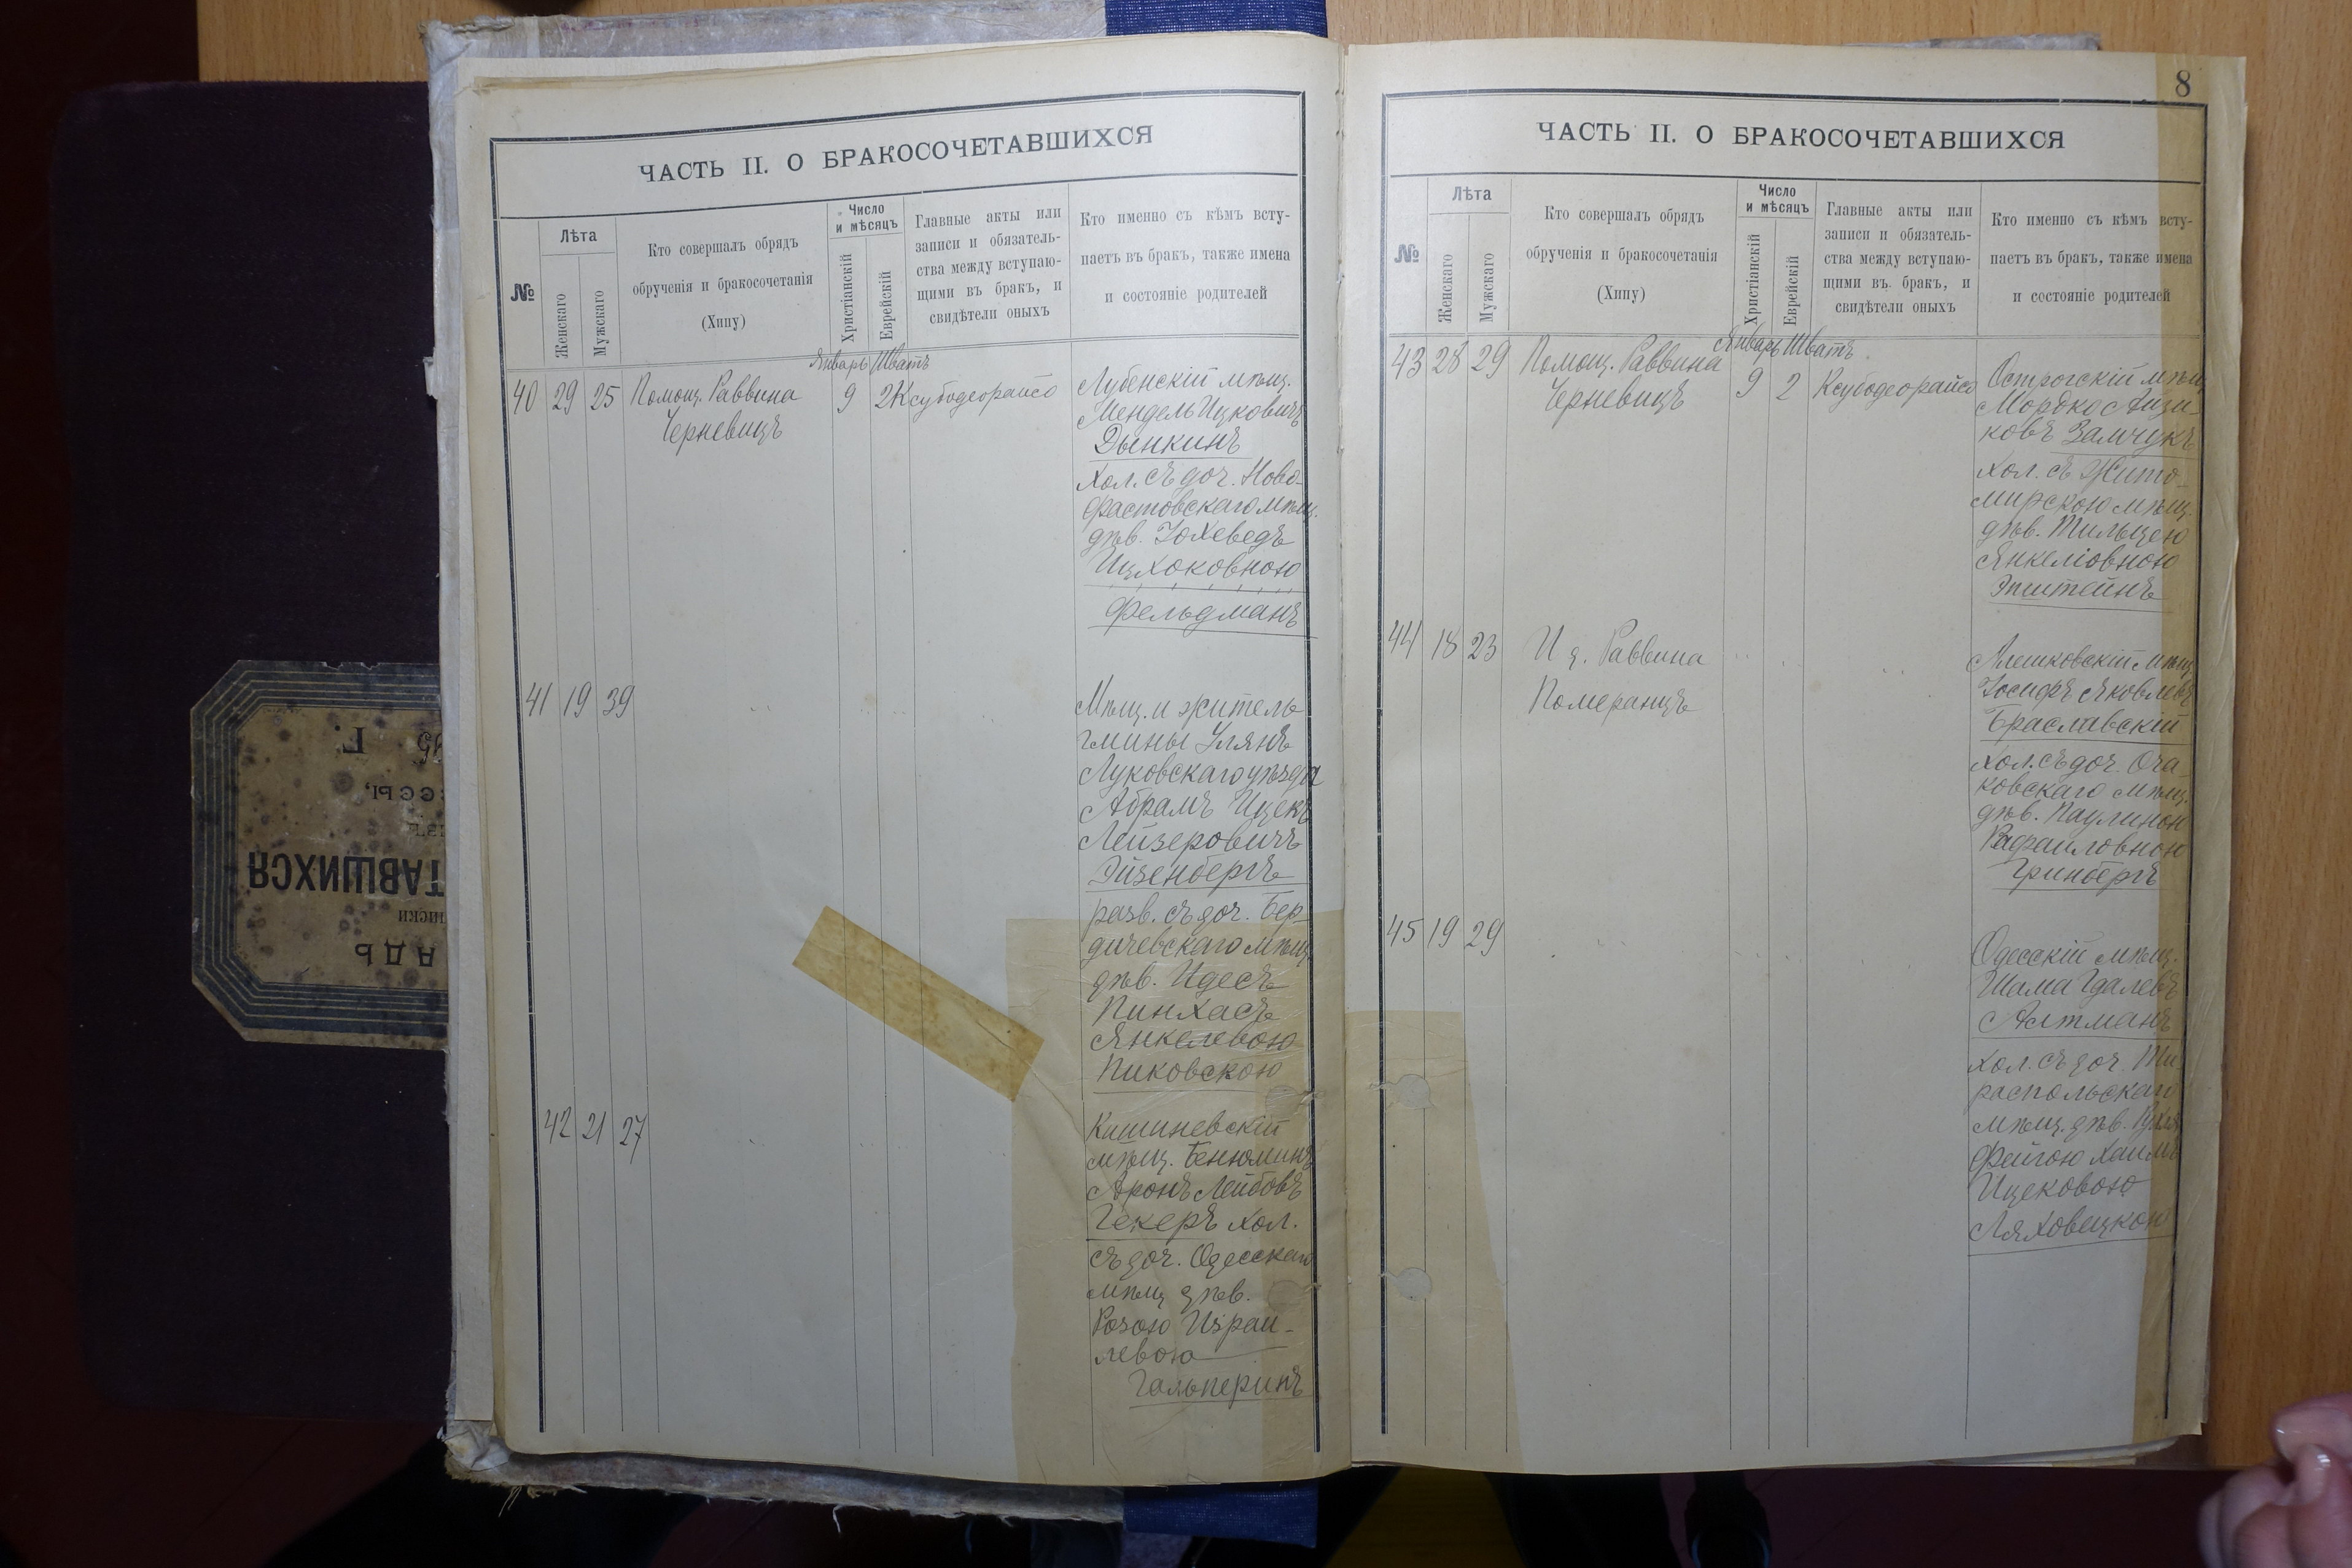 ЧАСТЬ II. О БРАКОСОЧЕТАВШИХСЯ
№
Лѣта
Женскаго
Мужскаго
Кто совершалъ обрядъ
обрученія и бракосочетанія
(Хипу)
Число
и мѣсяцъ
Христіанскій
Еврейскій
Главные акты или
записи и обязатель-
ства между вступаю-
щими въ бракъ, и
свидѣтели оныхъ
Кто именно съ кѣмъ всту-
паетъ въ бракъ, также имена
и состояніе родителей
Январь Шватъ
40 29 25 Помощ. Раввина 9 2 Ксубодеорайсо
Черневицъ
Лубенскій мѣщ.
Мендель Ицковичъ
Дынкинъ
хол. съ доч. Ново-
фастовскаго мѣщ.
дѣв. Іохеведъ
Ицхоковною
Фельдманъ
41 19 39
Мѣщ. и житель
гмины Улянъ
Луковскаго уѣзда
Абрамъ Ицекъ
Лейзеровичъ
Эйзенбергъ
разв. съ доч. Бер-
дичевскаго мѣщ.
дѣв. Идесъ
Пинхасъ
Янкелевою
Пиковскою
42 21 27
Кишиневскій
мѣщ. Бенюминъ
Аронъ Лейбовъ
Гекеръ хол.
съ доч. Одесскаго
мѣщ дѣв.
Розою Израи-
левою
Гальперинъ
8
ЧАСТЬ II. О БРАКОСОЧЕТАВШИХСЯ
№
Лѣта
Женскаго
Мужскаго
Кто совершалъ обрядъ
обрученія и бракосочетанія
(Хипу)
Число
и мѣсяцъ
Христіанскій
Еврейскій
Главные акты или
записи и обязатель-
ства между вступаю-
щими въ бракъ, и
свидѣтели оныхъ
Кто именно съ кѣмъ всту-
паетъ въ бракъ, также имена
и состояніе родителей
Январь Шватъ
43 28 29 Помощ. Раввина 9 2 Ксубодеорайсо
Черневицъ
Острогскій мѣщ
Мордко Аизи-
ковъ Замчукъ
хол. съ Жито-
мирскою мѣщ.
дѣв. Тильцею
Янкеліовною
Эпштейнъ
44 18 23 И д. Раввина
Померанцъ
Алешковскій мѣщ
Іосифъ Яковлевъ
Браславскій
хол. съ доч. Оча-
ковскаго мѣщ.
дѣв. Паулиною
Рафаиловною
Гринбергъ
45 19 29
Одесскій мѣщ.
Шама Гдалевъ
Алтманъ
хол. съ доч. Ти
распольскаго
мѣщ. дѣв.
Фейгою Хаимъ
Ицековою
Ляховецкой
Г.
ТАВШИХСЯ
АДЬ